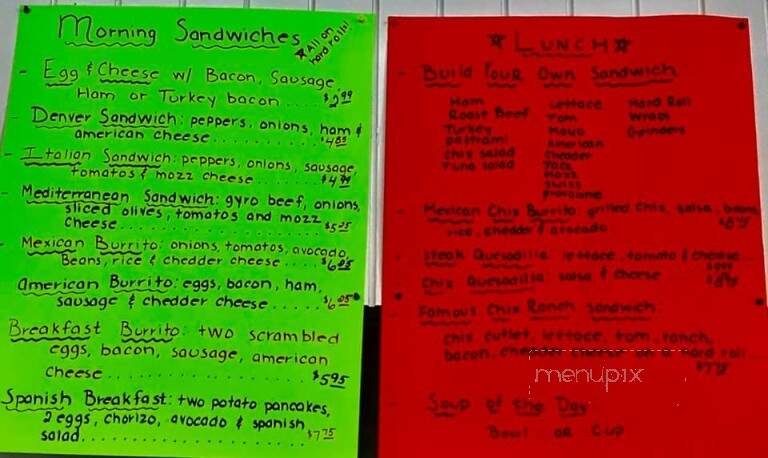 Morning Sandwiches
★All on
hard rolls!
- Egg & Cheese w/ Bacon, Sausage,
Ham or Turkey bacon .... $2.99
- Denver Sandwich: peppers, onions, ham &
american cheese
- Italian Sandwich: peppers, onions, sausage,
tomatos & mozz cheese
Mediterranean Sandwich: gyro beef, onions,
sliced olives, tomatos and mozz
cheese
- Mexican Burrito: onions, tomatos, avocado,
Beans, rice & chedder cheese
american Burrito: eggs, bacon, ham,
sausage & chedder cheese
Breakfast Burrito: two scrambled
eggs, bacon, sausage, american
cheese ..................... $5.95
Spanish Breakfast: two potato pancakes,
2 eggs, chorizo, avocado & spanish
salad....................... $7.75
★ Lunch ★
- Build Your Own Sandwich
Ham
Roast Beef
Turkey
pastrami
Chix salad
Tuna salad
Lettace
Tom
Mayo
American
Chedder
Mozz
Swiss
Hard Roll
Wraps
Grinders
- Mexican Chix Burrito: grilled chix, salsa, beans,
rice, chedder & avocado
- Steak Quesadilla: lettace, tomato & cheese
Chix Quesadilla: salsa & cheese
- Famous Chix Ranch Sandwich:
chix cutlet, lettace, tom, ranch,
bacon, hard roll
- Soup of the Day
Bowl or Cup
menupix